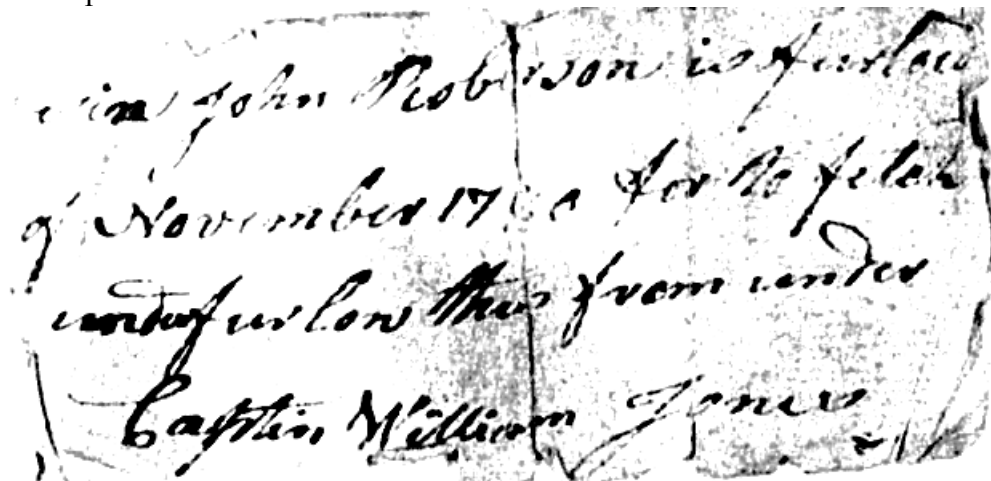 John Roberson is furlow
of November for to fetch
under furlow this from under
Captin William Jones